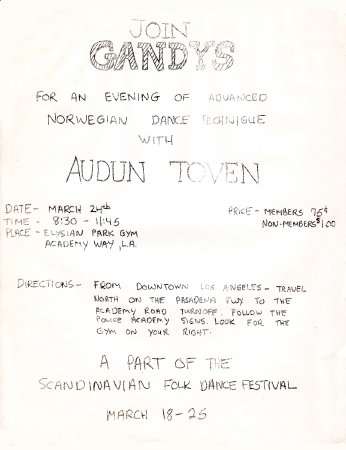 JOIN
GANDYS
FOR AN EVENING OF ADVANCED
NORWEGIAN DANCE TECHNIQUE
WITH
AUDUN TOVEN
DATE- MARCH 24th
TIME- 8:30 - 11:45
PLACE- ELYSIAN PARK GYM
ACADEMY WAY, L.A.
PRICE- MEMBERS 75¢
NON-MEMBERS $1.00
DIRECTIONS- FROM DOWNTOWN LOS ANGELES - TRAVEL
NORTH ON THE PASADENA FWY TO THE
ACADEMY ROAD TURNOFF. FOLLOW THE
POLICE ACADEMY SIGNS. LOOK FOR THE
GYM ON YOUR RIGHT.
A PART OF THE
SCANDINAVIAN FOLK DANCE FESTIVAL
MARCH 18-25